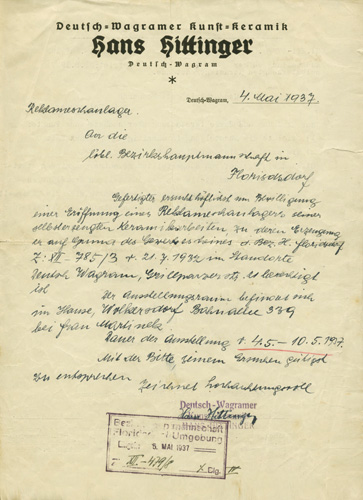 Deutsch-Wagramer Kunst-Keramik
Hans Hittinger
Deutsch-Wagram
*
Deutsch-Wagram, 4. Mai 1937.
Reklameschaulager.
An die
löbl. Bezirkshauptmannschaft in
Floridsdorf
Gefertigter ersucht höflichst um Bewilligung
einer Eröffnung eines Reklameschaulagers seiner
selbsterzeugten Keramikarbeiten zu deren Erzeugung
er auf Grund des Gewerbescheines d. Bez. H. Floridsdorf
Z: XII - 785/3 + 21.7.1932 im Standorte
Deutsch Wagram, berechtigt
ist
Der Ausstellungsraum befindet sich
im Hause, Wolkersdorf Bahnallee 339
bei Frau
Dauer der Ausstellung v. 4.5. - 10.5.1937.
Mit der Bitte, seinem Ersuchen gütigst
zu entsprechen
zeichnet hochachtungsvoll
Deutsch-Wagramer
Hans Hittinger
Bezirkshauptmannschaft
Floridsdorf Umgebung
Eingel. 5. MAI 1937
XII-479/8